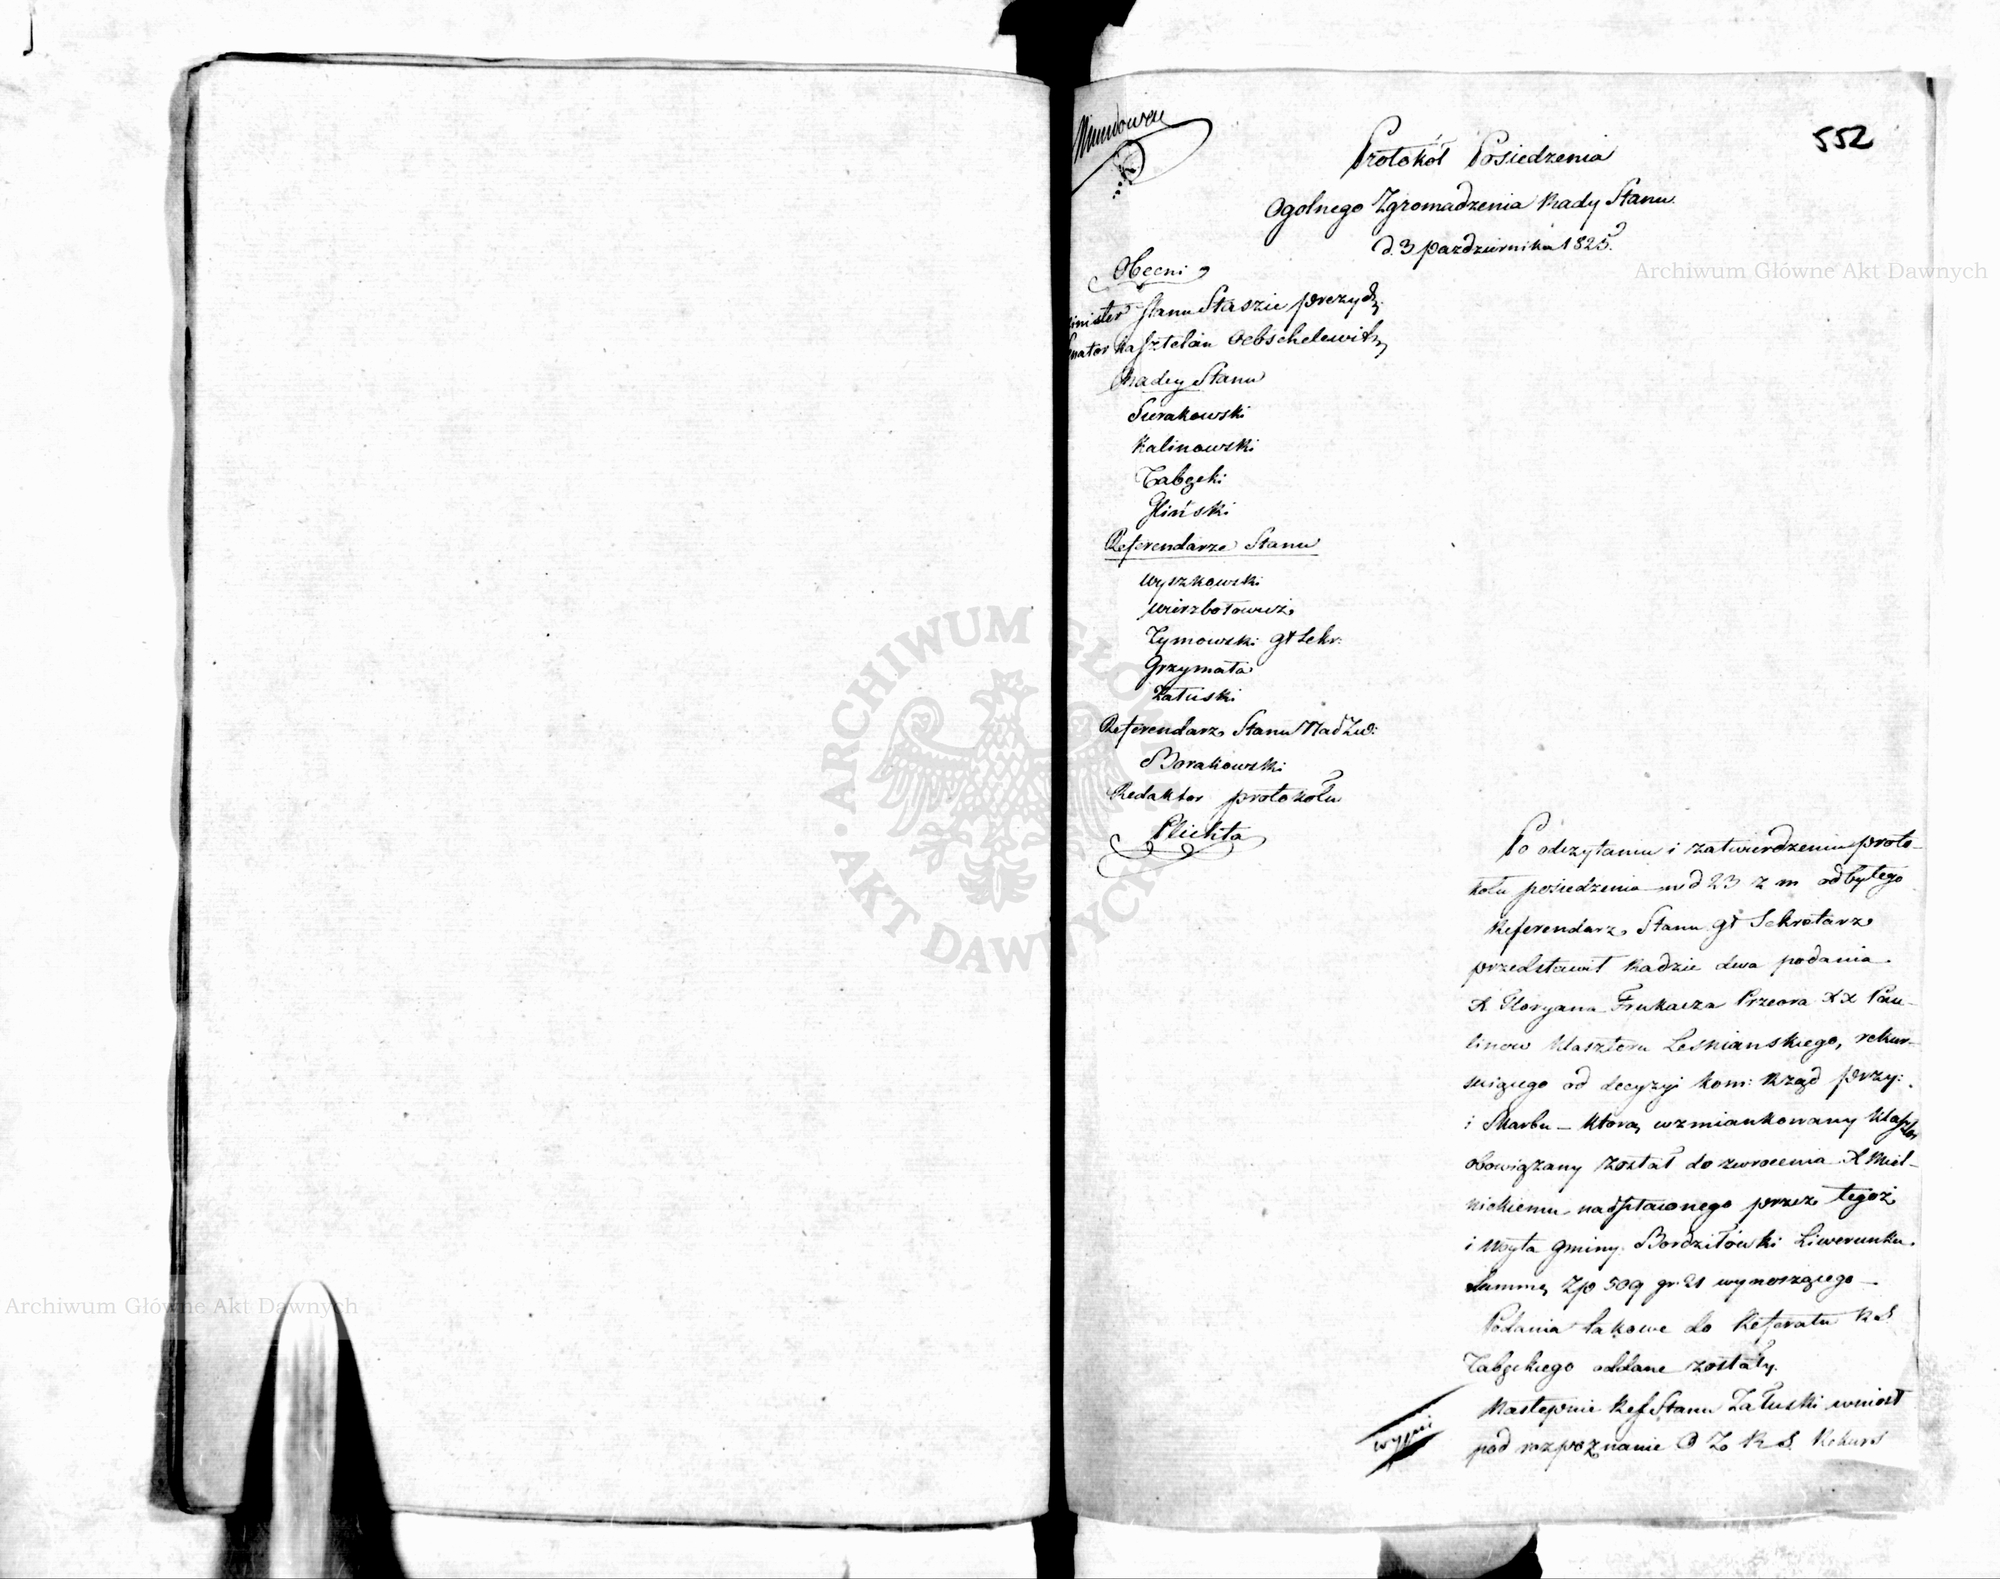 552
Protokół Posiedzenia
Ogolnego Zgromadzenia Rady Stanu
d. 3 pazdziernika 1825.
Archiwum Główne Akt Dawnych
Obecni
Minister Stanu Staszic prezyd:
Senator Kasztelan Oebschelewitz
Radcy Stanu
Surakowski
Kalinowski
Tabęcki
Gliński
Referendarze Stanu
Wyszkowski
Wierzbołowicz
Tymowski gł Sekr:
Grzymała
Załuski
Referendarz Stanu Nadzw:
Borakowski
Redaktor protokołu
Plichta
Po odczytaniu i zatwierdzeniu proto-
kołu posiedzenia w d 23 z m odbytego
Referendarz Stanu gł Sekretarz
przedstawił Radzie dwa podania.
X Floryana Frukacza Przeora XX Pau-
linow klasztoru Lesnianskiego, rekur-
suiącego od decyzyi kom: Rząd przy:
i Skarbu – którą wzmiankowany klasztor
obowiązany został do zwrocenia X Miel-
nickiemu nadpłaconego przez tegoż
i Woyta gminy Bordziłówki Liwerunku.
Summę Zp 509 gr. 21 wynoszącego –
Podania takowe do Referatu RS
Tabęckiego oddane zostały.
Następnie Ref Stanu Załuski wniosł
pod rozpoznanie O Z R S. Rekurs
wypis
ARCHIWUM GŁÓWNE AKT DAWNYCH
Archiwum Główne Akt Dawnych